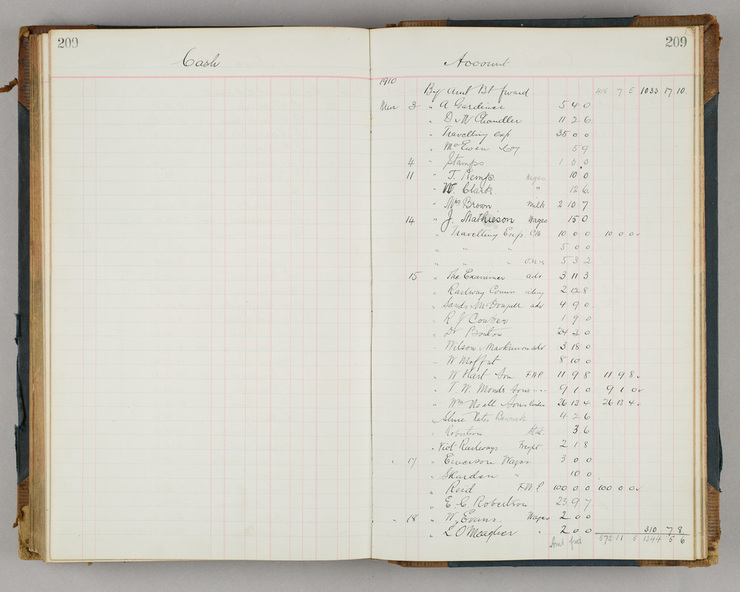 209
Cash
Account
209
1910
By Amt Bt fward 7 1033 17 10
Mar 3 " A Gardiner 5 4 0
" D. M Chandler 11 2 6
" Travelling exp 35 0 0
" McEwen 5 9
4 " Stamps 1 0 0
11 " T. Kemp 10 0
" W. Clark " 12 6
" Mrs Brown Milk 2 10 7
14 " J. Mathieson Wages 15 0
" Travelling Exp 10 0 0 10 0 0
" " " 5 0 0
" " " 5 3 2
15 " The Examiner adv 3 11 3
" Railway Comm 2
" Sands McDougall adv 4 9 0
" R J 1 9 0
" Dr 24 2 0
" Wilson Mackinnon adv 3 18 0
" W Moffat 8 10 0
" W Hart Son F.W.P. 11 9 8 11 9 8
" T. W. Monds Sons 9 1 0 9 1 0
" Wm Noall Sons 26 13 4 26 13 4
" Shire Rates 4 2 6
" Robertson 3 6
" Vict Railways Freight 2 1 8
" 17 " Emerson Wages 3 0 0
" " 10 0
" Reid F.W.P. 100 0 0 100 0 0
" E. C Robertson 23 9 7
" 18 " W. Evans Wages 2 0 0
" L O'Meagher " 2 0 0 310 7 8
fwd 572 11 1344 5 6